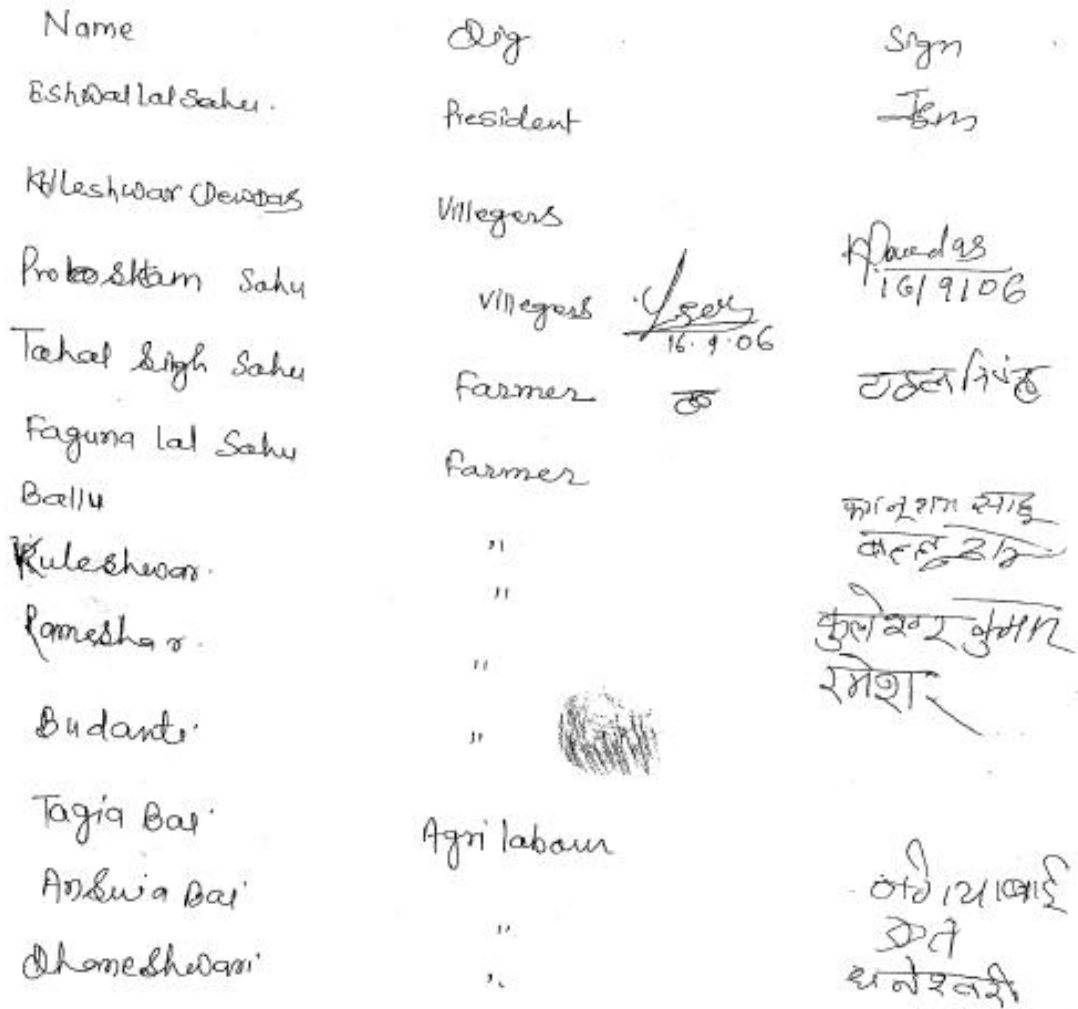 Name Dig Sign
Eshwal lal Sahu. President
Kuleshwar Dewdas Villegers Dewdas 16/9/06
Sahu Villegers 16.9.06
Tahal Singh Sahu Farmer ठ टहल सिंह
Faguna lal Sahu Farmer
Ballu " साहू
Kuleshwar. " कुलेश्वर कुमार
Rameshar. " रमेश
Budanti "
Tagia Bai Agri labour
Ansuia Bai " बाई
Dhameshwari " धनेश्वरी